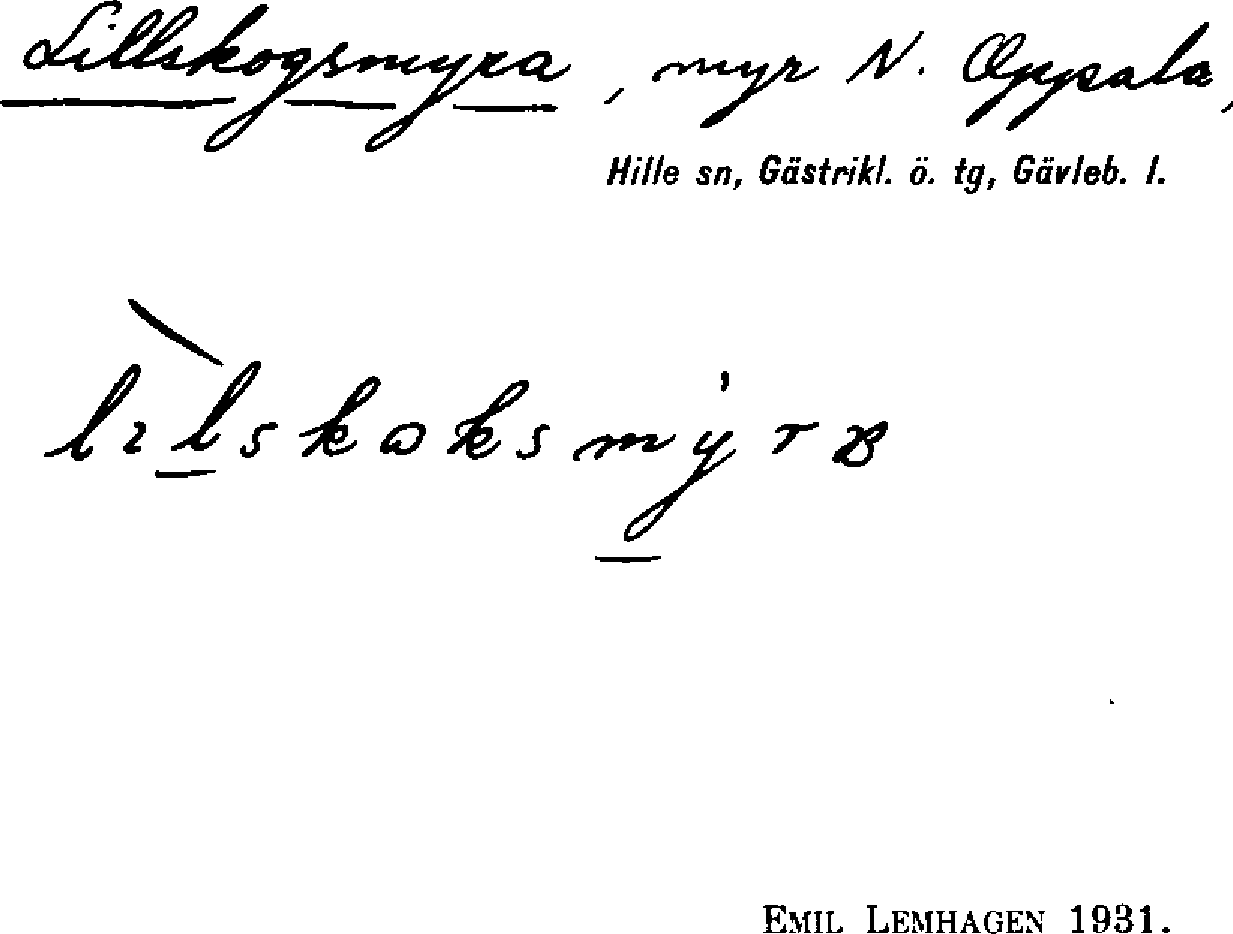 Lillskogsmyra, myr N. Oppsala,
Hille sn, Gästrikl. ö. tg, Gävleb. l.
EMIL LEMHAGEN 1931.